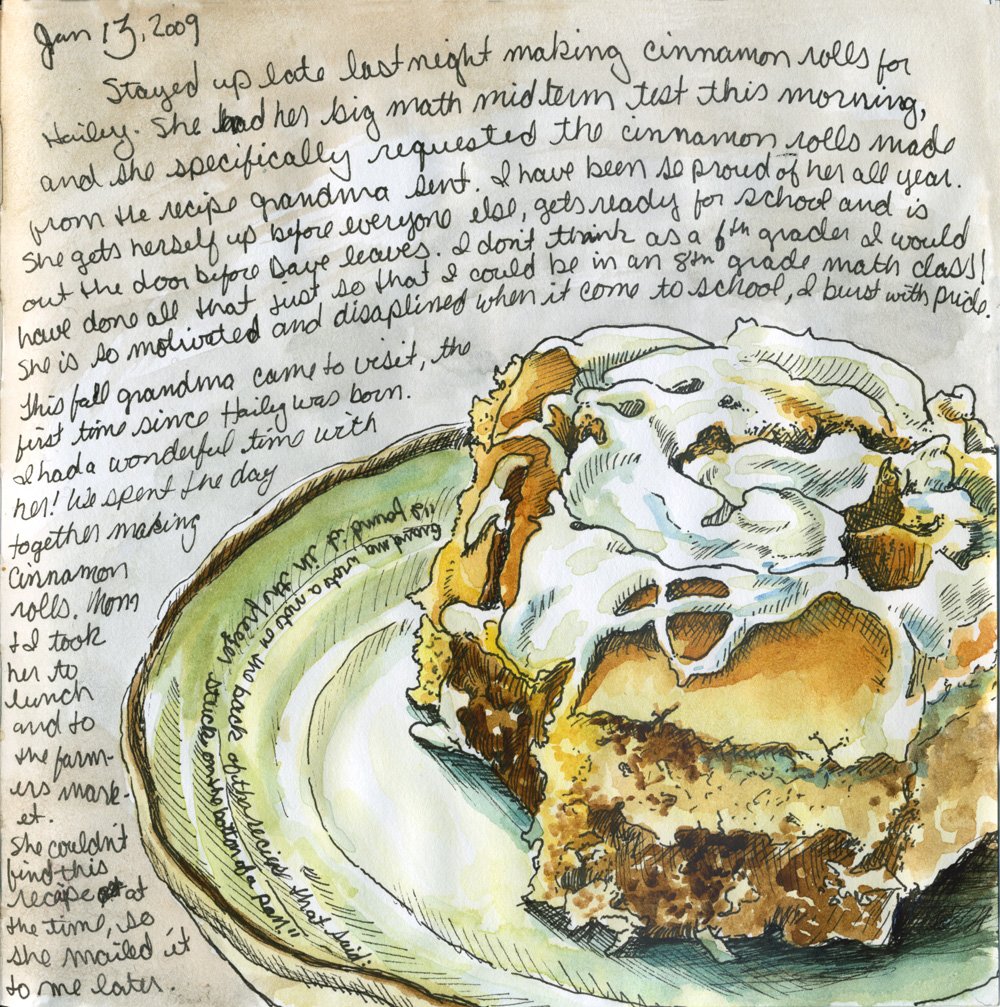 Jan 13, 2009
Stayed up late last night making cinnamon rolls for
Hailey. She had her big math midterm test this morning,
and she specifically requested the cinnamon rolls made
from the recipe grandma sent. I have been so proud of her all year.
She gets herself up before everyone else, gets ready for school and is
out the door before Dave leaves. I don't think as a 6th grader I would
have done all that just so that I could be in an 8th grade math class!
She is so motivated and disaplined when it come to school, I burst with pride.
This fall grandma came to visit, the
first time since Haily was born.
I had a wonderful time with
her! We spent the day
together making
cinnamon
rolls. Mom
& I took
her to
lunch
and to
the farm-
ers mark-
et.
She couldn't
find this
recipe at
the time, so
she mailed it
to me later.
Grandma wrote a note on the back of the recipe that said
"I found it in the freezer stuck on the bottom of a pan."